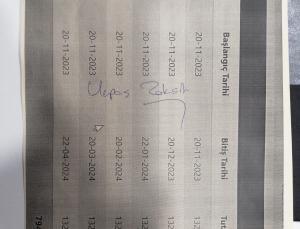 Başlangıç Tarihi Bitiş Tarihi Tut
20-11-2023 20-11-2023 132
20-11-2023 20-12-2023 132
20-11-2023 22-01-2024 132
20-11-2023 20-02-2024 132
20-11-2023 20-03-2024 132
20-11-2023 22-04-2024 132